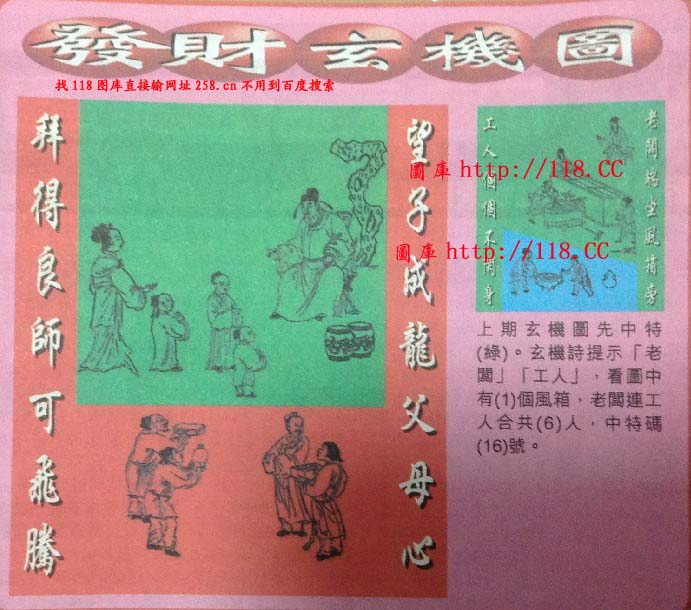 發財玄機圖
找118图库直接输网址258.cn不用到百度搜索
望子成龍父母心
拜得良師可飛騰
老闆端坐風箱旁
工人個個不閑身
圖庫 http://118.CC
圖庫 http://118.CC
上期玄機圖先中特
(綠)。玄機詩提示「老
闆」「工人」，看圖中
有(1)個風箱，老闆連工
人合共(6)人，中特碼
(16)號。